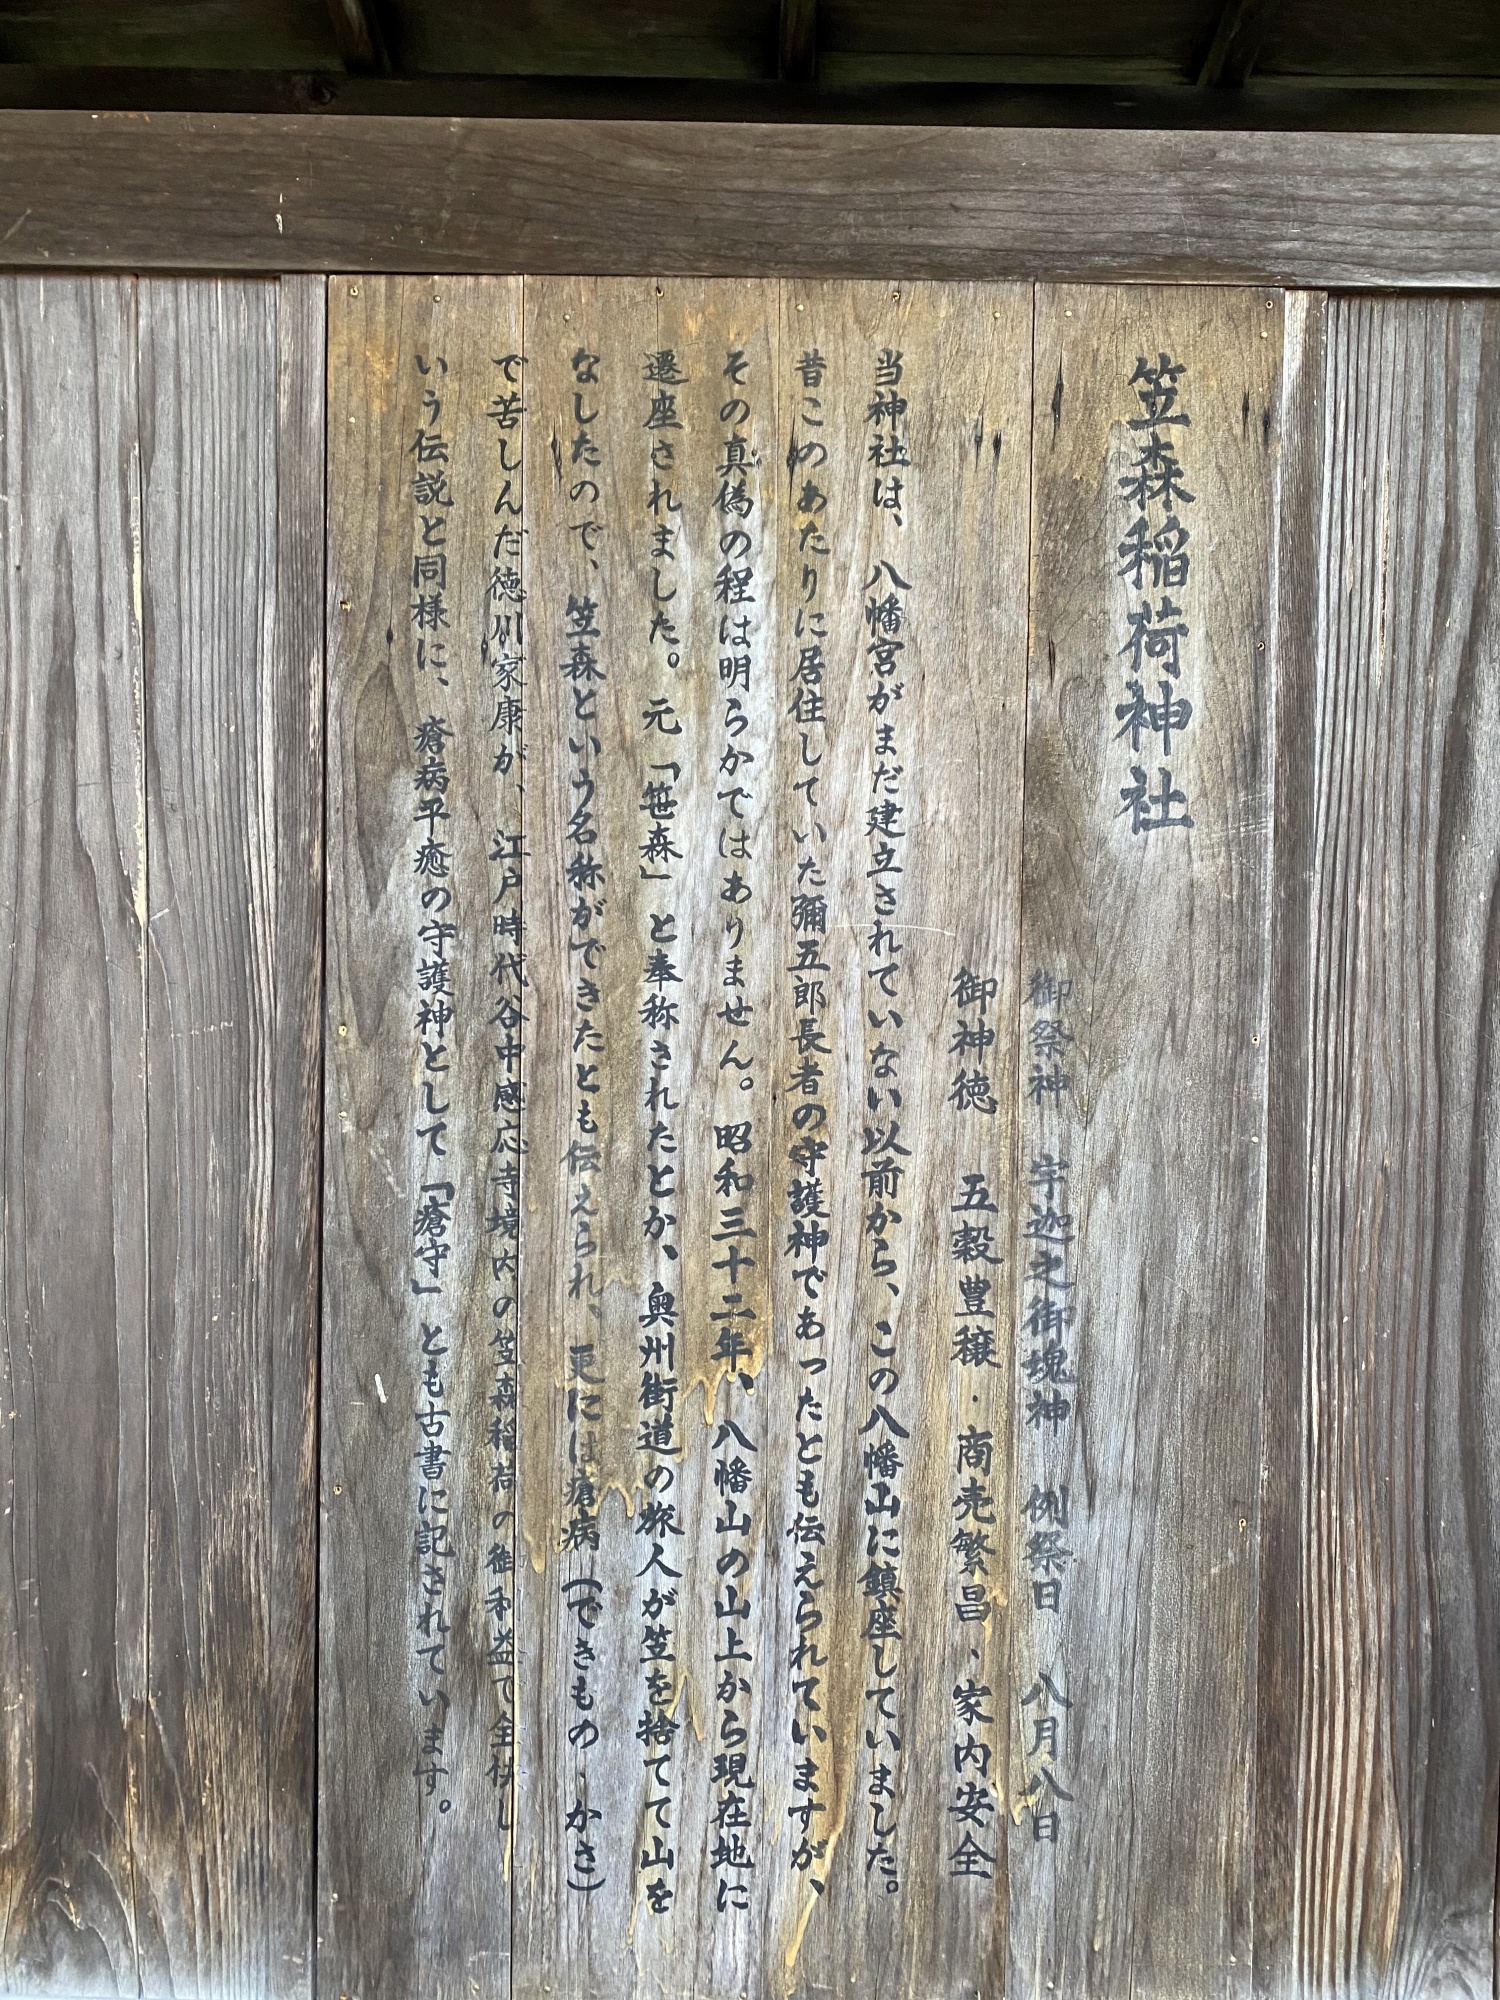 笠森稲荷神社
御祭神　宇迦之御魂神　例祭日　八月八日
御神徳　五穀豊穣・商売繁昌、家内安全
当神社は、八幡宮がまだ建立されていない以前から、この八幡山に鎮座していました。
昔このあたりに居住していた彌五郎長者の守護神であったとも伝えられていますが、
その真偽の程は明らかではありません。昭和三十二年、八幡山の山上から現在地に
遷座されました。元「笹森」と奉称されたとか、奥州街道の旅人が笠を捨てて山を
なしたので、笠森という名称ができたとも伝えられ、更には瘡病（できもの・かさ）
で苦しんだ徳川家康が、江戸時代谷中感応寺境内の笠森稲荷の御利益で全快し
いう伝説と同様に、瘡病平癒の守護神として「瘡守」とも古書に記されています。